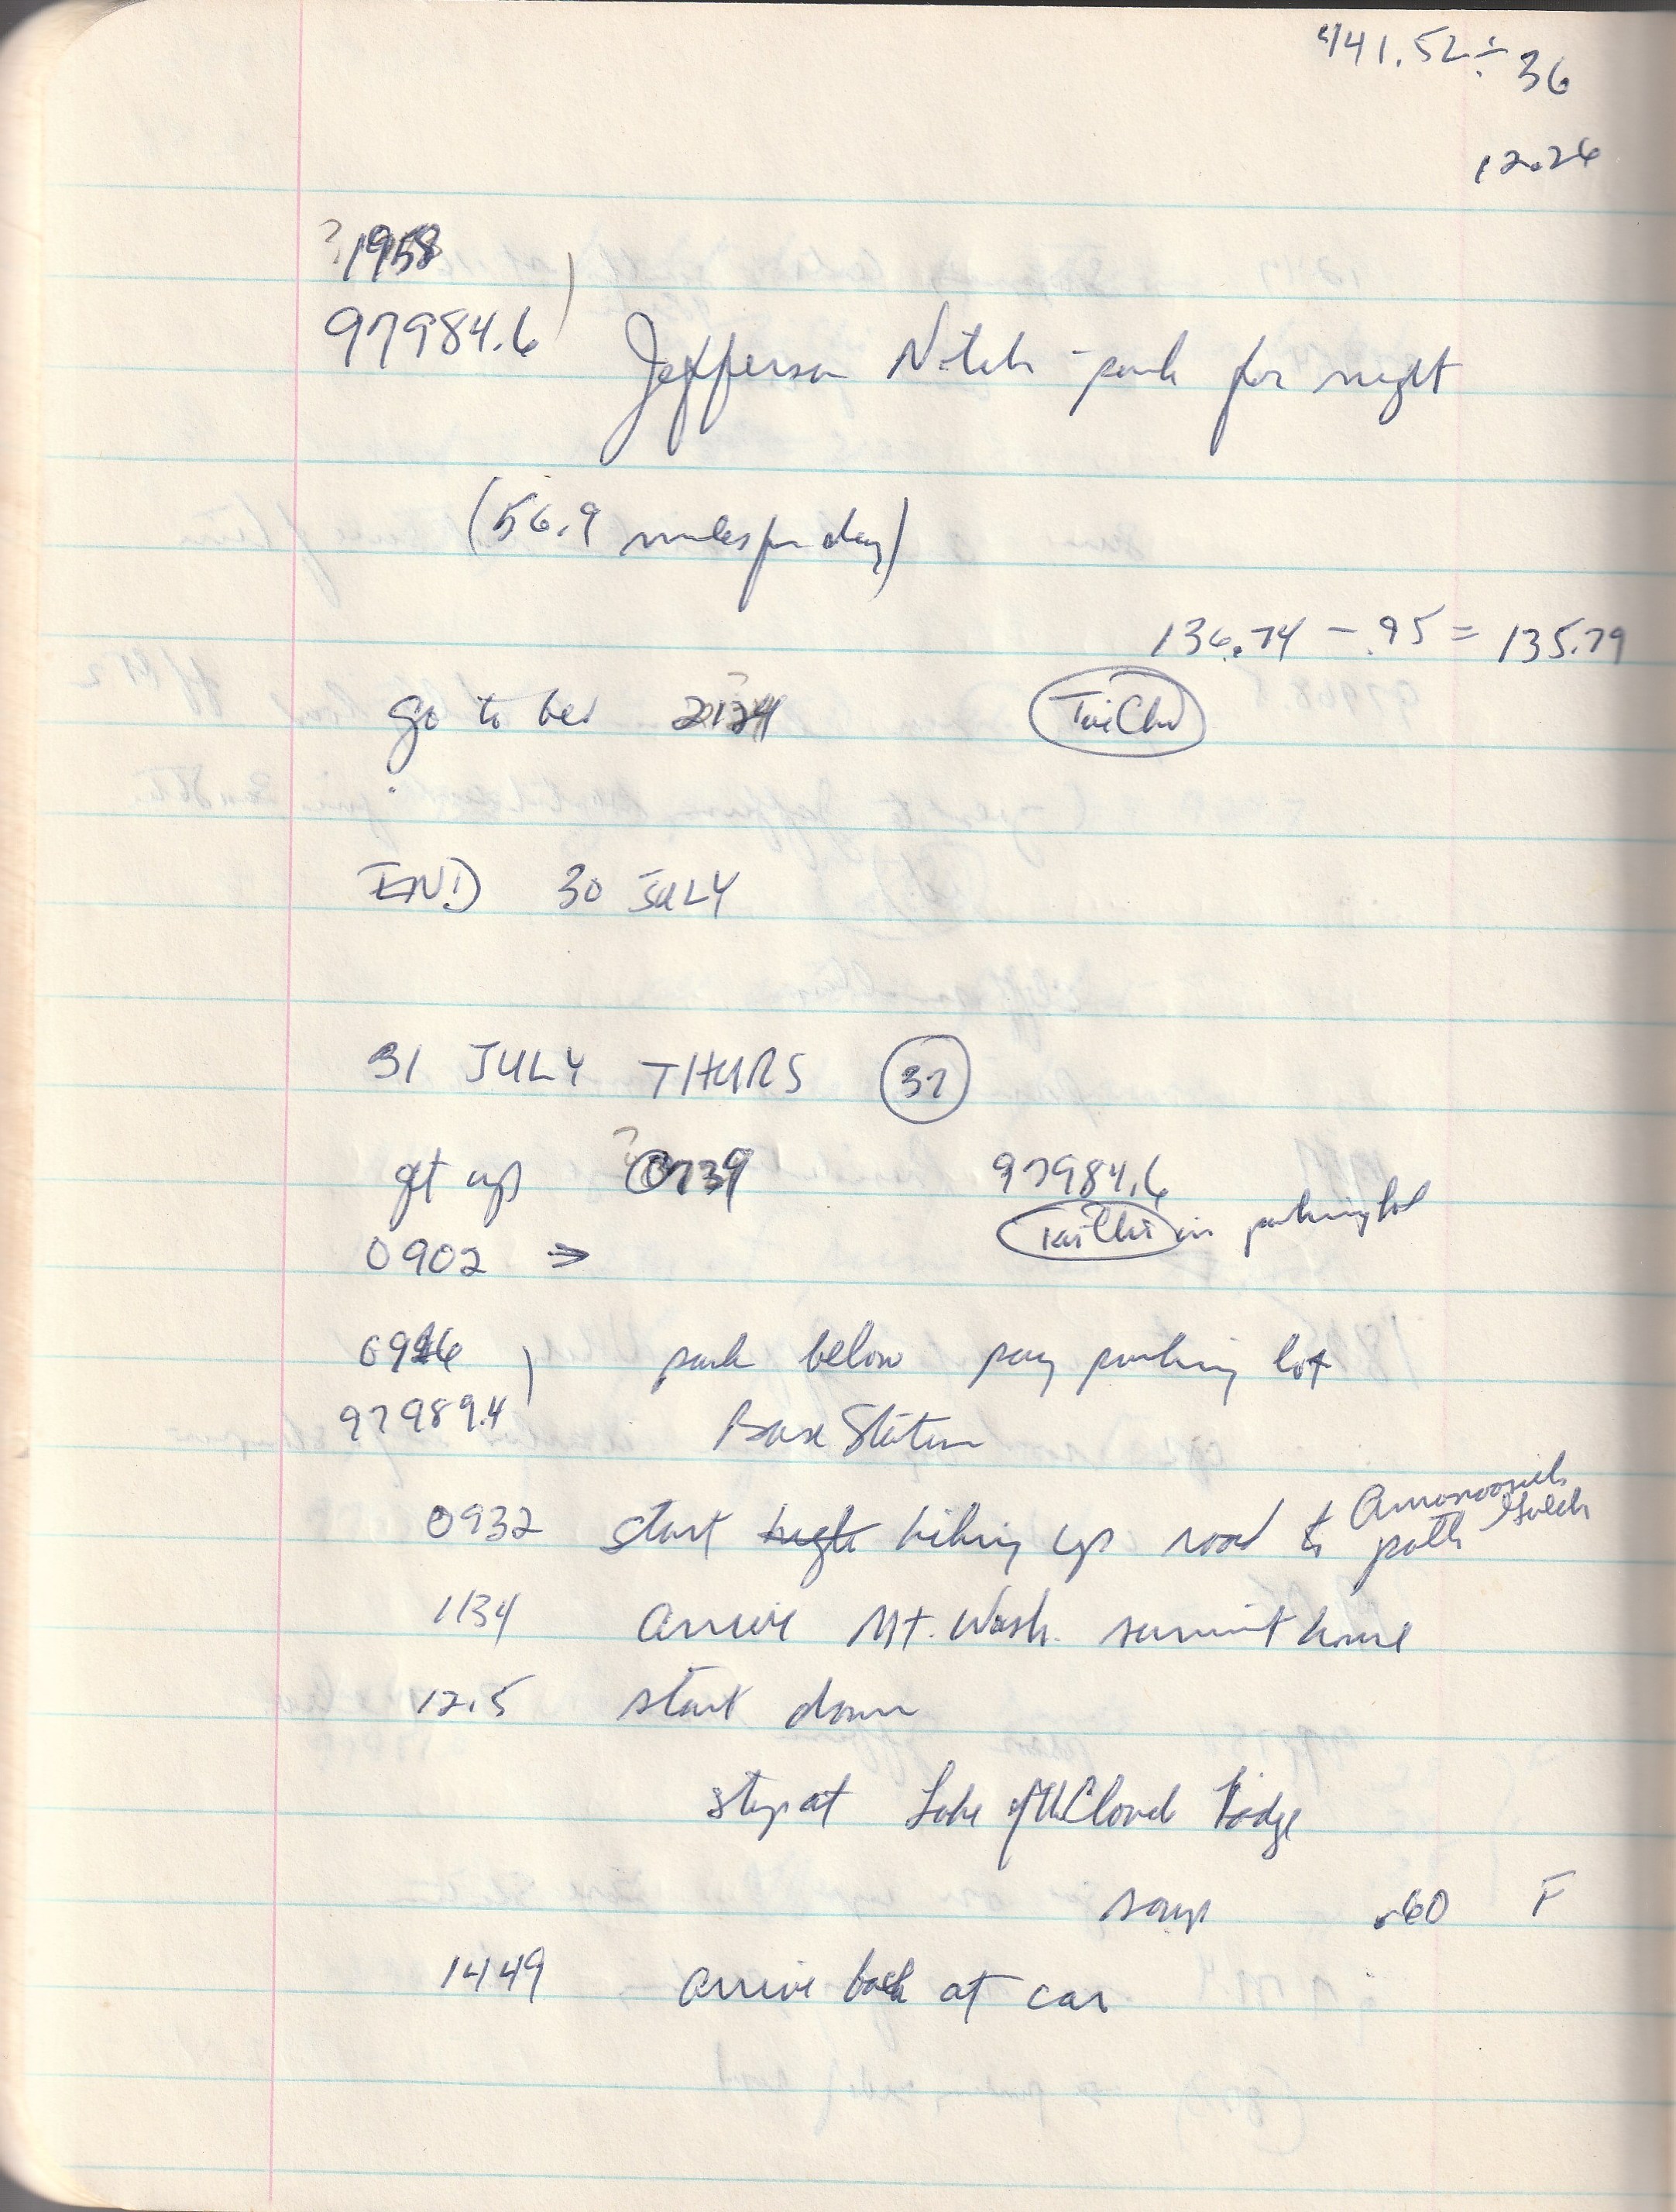 441.52 ÷ 36
12.26
? 1958
97984.6 ) Jefferson Notch - park for night
(56.9 miles per day)
136.74 - .95 = 135.79
go to bed 2124 Tai Chi
END 30 JULY
31 JULY THURS 37
get up ? 0739 97984.6
Tai Chi in parking lot
0902 →
0916 ) park below pay parking lot
97989.4 Base Station
0932 start hiking up road to Ammonoosuc
path Gulch
1134 arrive Mt. Wash. summit house
12.5 start down
stop at Lake of the Cloud
soup .60 F
1449 arrive back at car